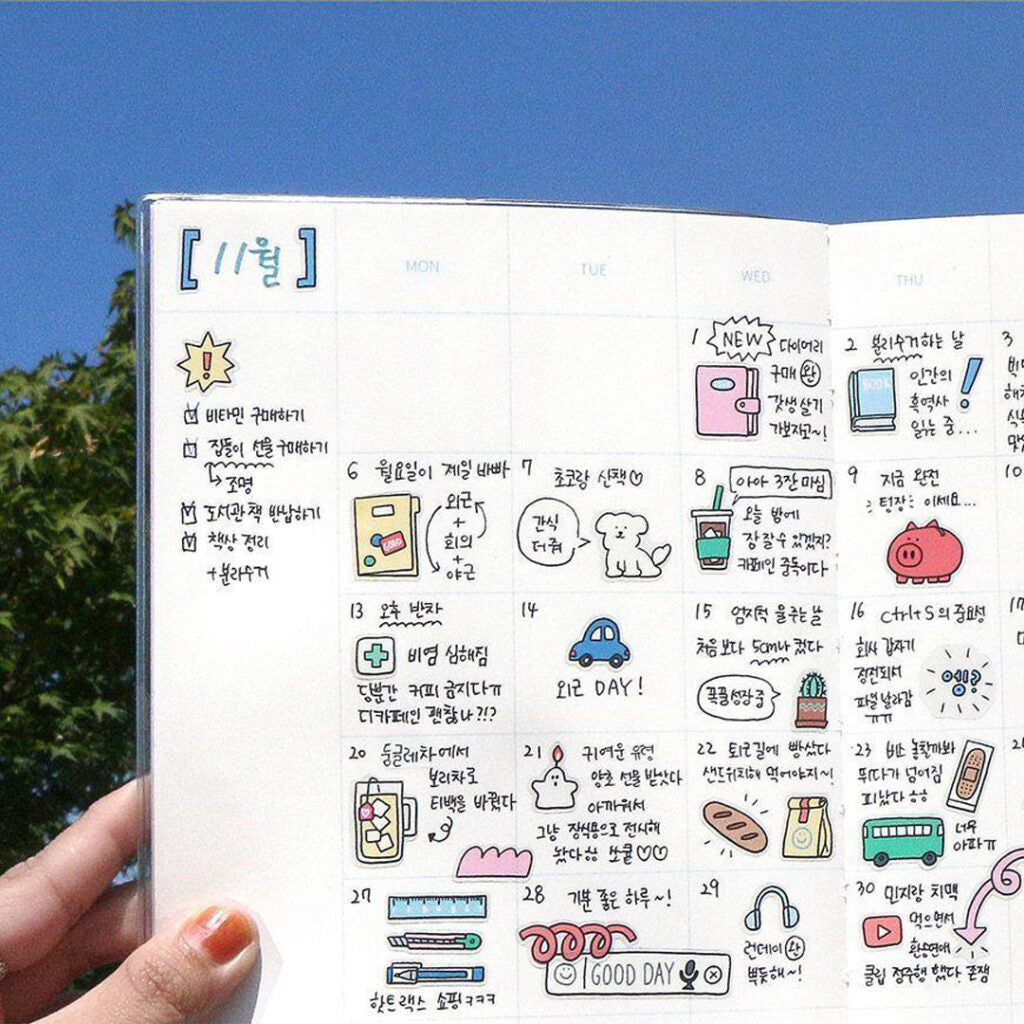 [11월]
MON
TUE
WED
THU
비타민 구매하기
집들이 선물 구매하기
조명
도서관 책 반납하기
책상 정리
+분리수거
1
NEW
다이어리
구매 완
갓생 살기
가보자고~!
2 분리수거하는 날
BOOK
인간의
흑역사
읽는 중...
3
6 월요일이 제일 바빠
GOOD
외근
+
회의
+
야근
7 초코랑 산책♡
간식
더 줘
8
아아 3잔 마심
오늘 밤에
잠 잘 수 있겠지?
카페인 중독이다
9 지금 완전
텅장이세요...
10
13 오후 반차
비염 심해짐
당분간 커피 금지다ㅠ
디카페인 괜찮나?!?
14
외근 DAY!
15 엄지척 물 주는 날
처음보다 5cm나 컸다
폭풀성장중
16 ctrl+S의 중요성
회사 갑자기
정전되서
파일 날라감
ㅠㅠ
예?
17
20 둥글레차에서
보리차로
티백을 바꿨다
21 귀여운 유령
양초 선물 받았다
아까워서
그냥 장식용으로 전시해
놨다ㅎㅎ 쏘쿨♡♡
22 퇴근길에 빵 샀다
샌드위치해 먹어야지~!
23 버스 놓칠까봐
뛰다가 넘어짐
피났다ㅎㅎ
너무
아파ㅠ
27
핫트랙스 쇼핑ㅋㅋㅋ
28 기분 좋은 하루~!
GOOD DAY
29
런데이 완
뿌듯해~!
30 민지랑 치맥
먹으면서
환승연애
클립 정주행 했다. 존잼